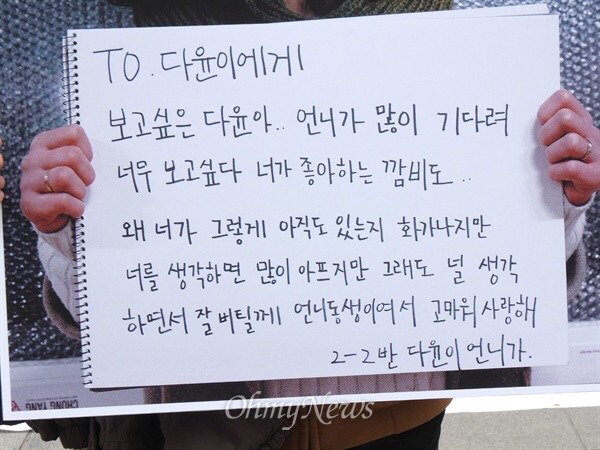 TO. 다윤이에게
보고싶은 다윤아.. 언니가 많이 기다려
너무 보고싶다 너가 좋아하는 깜비도..
왜 너가 그렇게 아직도 있는지 화가나지만
너를 생각하면 많이 아프지만 그래도 널 생각
하면서 잘 버틸께 언니동생이여서 고마워 사랑해
2-2반 다윤이 언니가.
CHUNG YANG
OhmyNews